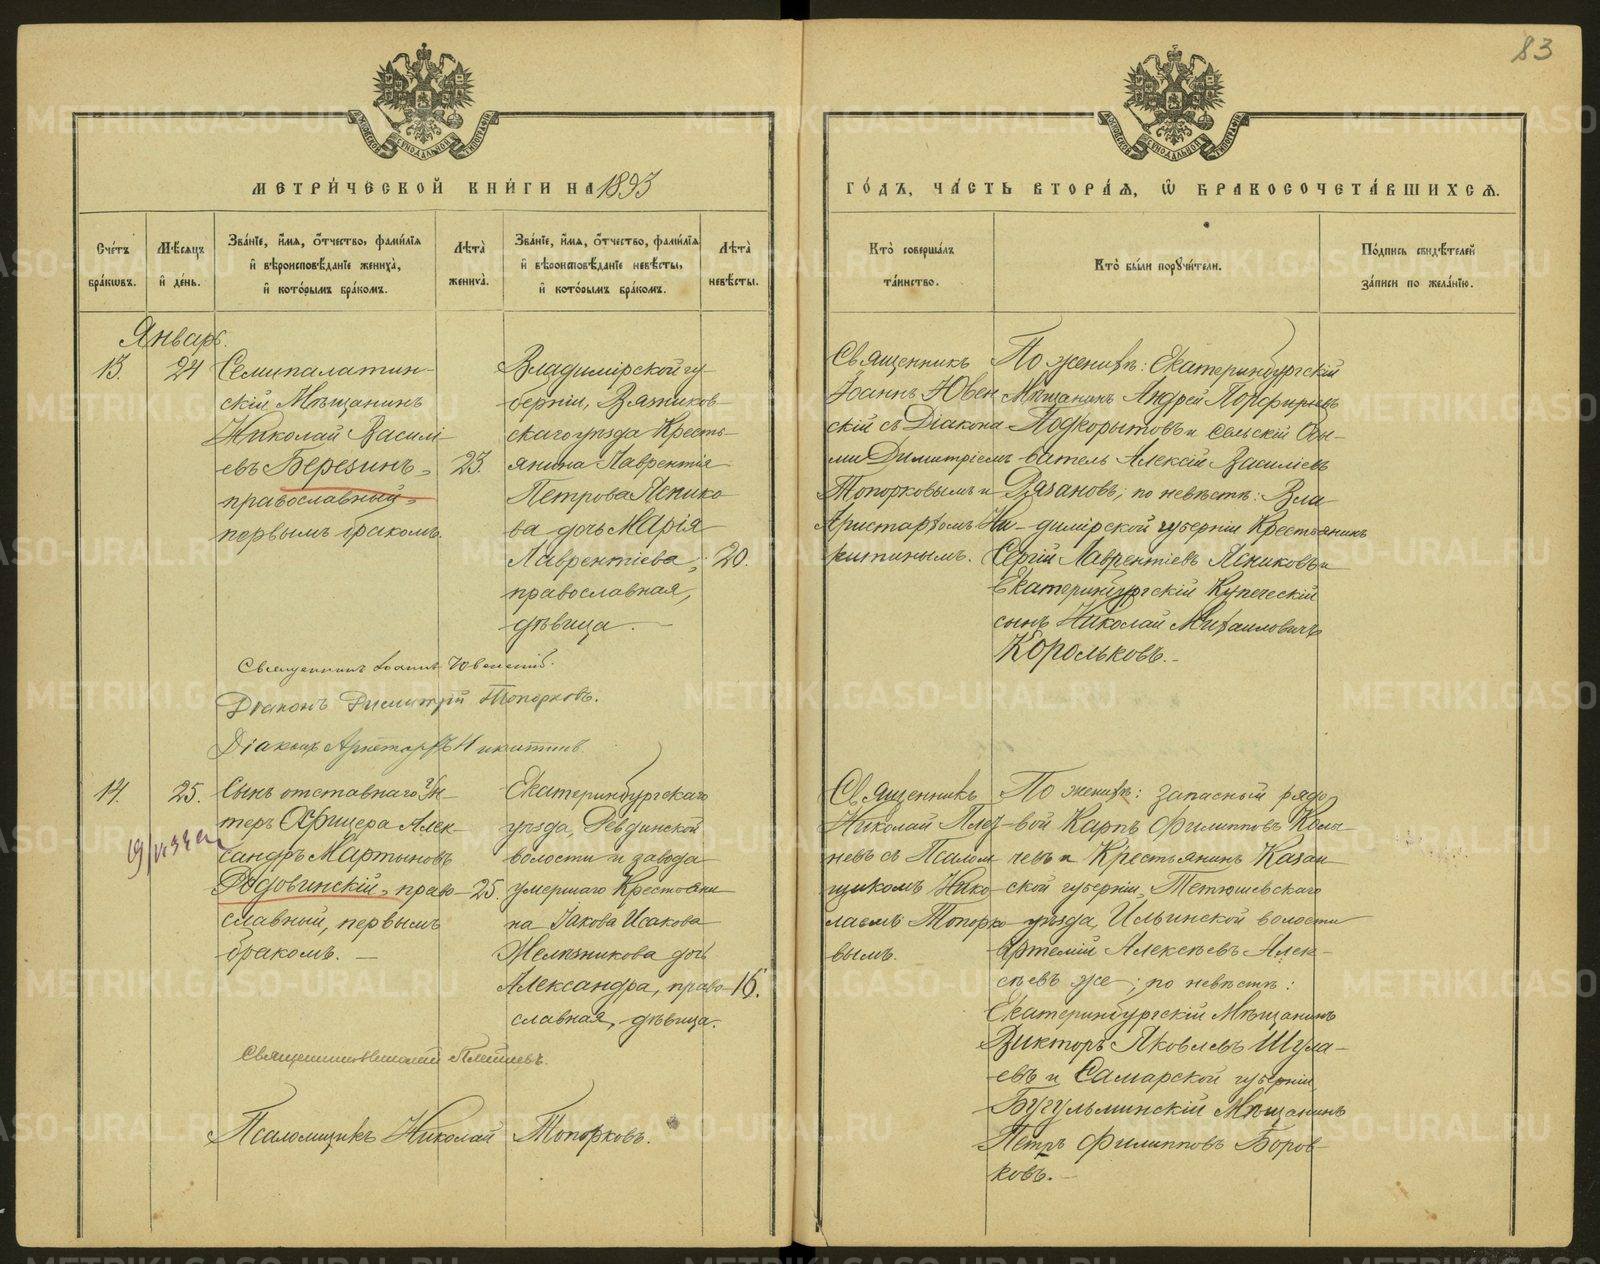 83
МЕТРИЧЕСКОЙ КНИГИ НА 1893
ГОДЪ, ЧАСТЬ ВТОРАЯ, Ѡ БРАКОСОЧЕТАВШИХСЯ.
Счетъ браковъ.
Мѣсяцъ и день.
Званіе, имя, отчество, фамилія и вѣроисповѣданіе жениха, и которымъ бракомъ.
Лѣта жениха.
Званіе, имя, отчество, фамилія и вѣроисповѣданіе невѣсты, и которымъ бракомъ.
Лѣта невѣсты.
Кто совершалъ таинство.
Кто были поручители.
Подпись свидѣтелей записи по желанію.
Январь.
13.
24
Семипалатин-
скій Мѣщанинъ
Николай Василі-
евъ Березинъ,
православный,
первымъ бракомъ.
23.
Владимірской гу
берніи, Вязников-
скаго уѣзда Кресть-
янина Лаврентія
Петрова Яснико
ва дочь Марія
Лаврентіева,
православная,
дѣвица.
20.
Священникъ
Іоаннъ Ювен
скій съ Діакона-
ми Димитріемъ
Топорковымъ и
Аристархомъ Ни-
китинымъ.
По женихѣ: Екатеринбургскій
Мѣщанинъ Андрей Порфирьевъ
Подкорытовъ и Сельскій Обы-
ватель Алексій Василіевъ
Рязановъ; по невѣстѣ: Вла
димірской губерніи Крестьянинъ
Сергій Лаврентіевъ Ясниковъ и
Екатеринбургскій Купеческій
сынъ Николай Михаиловичъ
Корольковъ.
Священникъ Іоаннъ Ювенскій.
Діаконъ Димитрій Топорковъ.
Діаконъ Аристархъ Никитинъ
14.
25.
Сынъ отставнаго Ун-
теръ Офицера Алек-
сандръ Мартыновъ
Родовинскій, право-
славный, первымъ
бракомъ.
25.
Екатеринбургскаго
уѣзда, Ревдинской
волости и завода
умершаго Крестьяни
на Іакова Исакова
Желѣзникова дочь
Александра, право-
славная, дѣвица.
16.
Священникъ
Николай Плет-
невъ съ Псалом
щикомъ Нико-
лаемъ Топорко
вымъ.
По женихѣ: запасный рядо
вой Карпъ Филипповъ
и Крестьянинъ Казан
ской губерніи, Тетюшевскаго
уѣзда, Ильинской волости
Артемій Алексѣевъ Алек-
сѣевъ же; по невѣстѣ:
Екатеринбургскій Мѣщанинъ
Викторъ Яковлевъ Шула-
евъ и Самарской губерніи
Бугульминскій Мѣщанинъ
Петръ Филипповъ Боров-
ковъ.
Священникъ Николай Плетневъ.
Псаломщикъ Николай Топорковъ.
METRIKI.GASO-URAL.RU